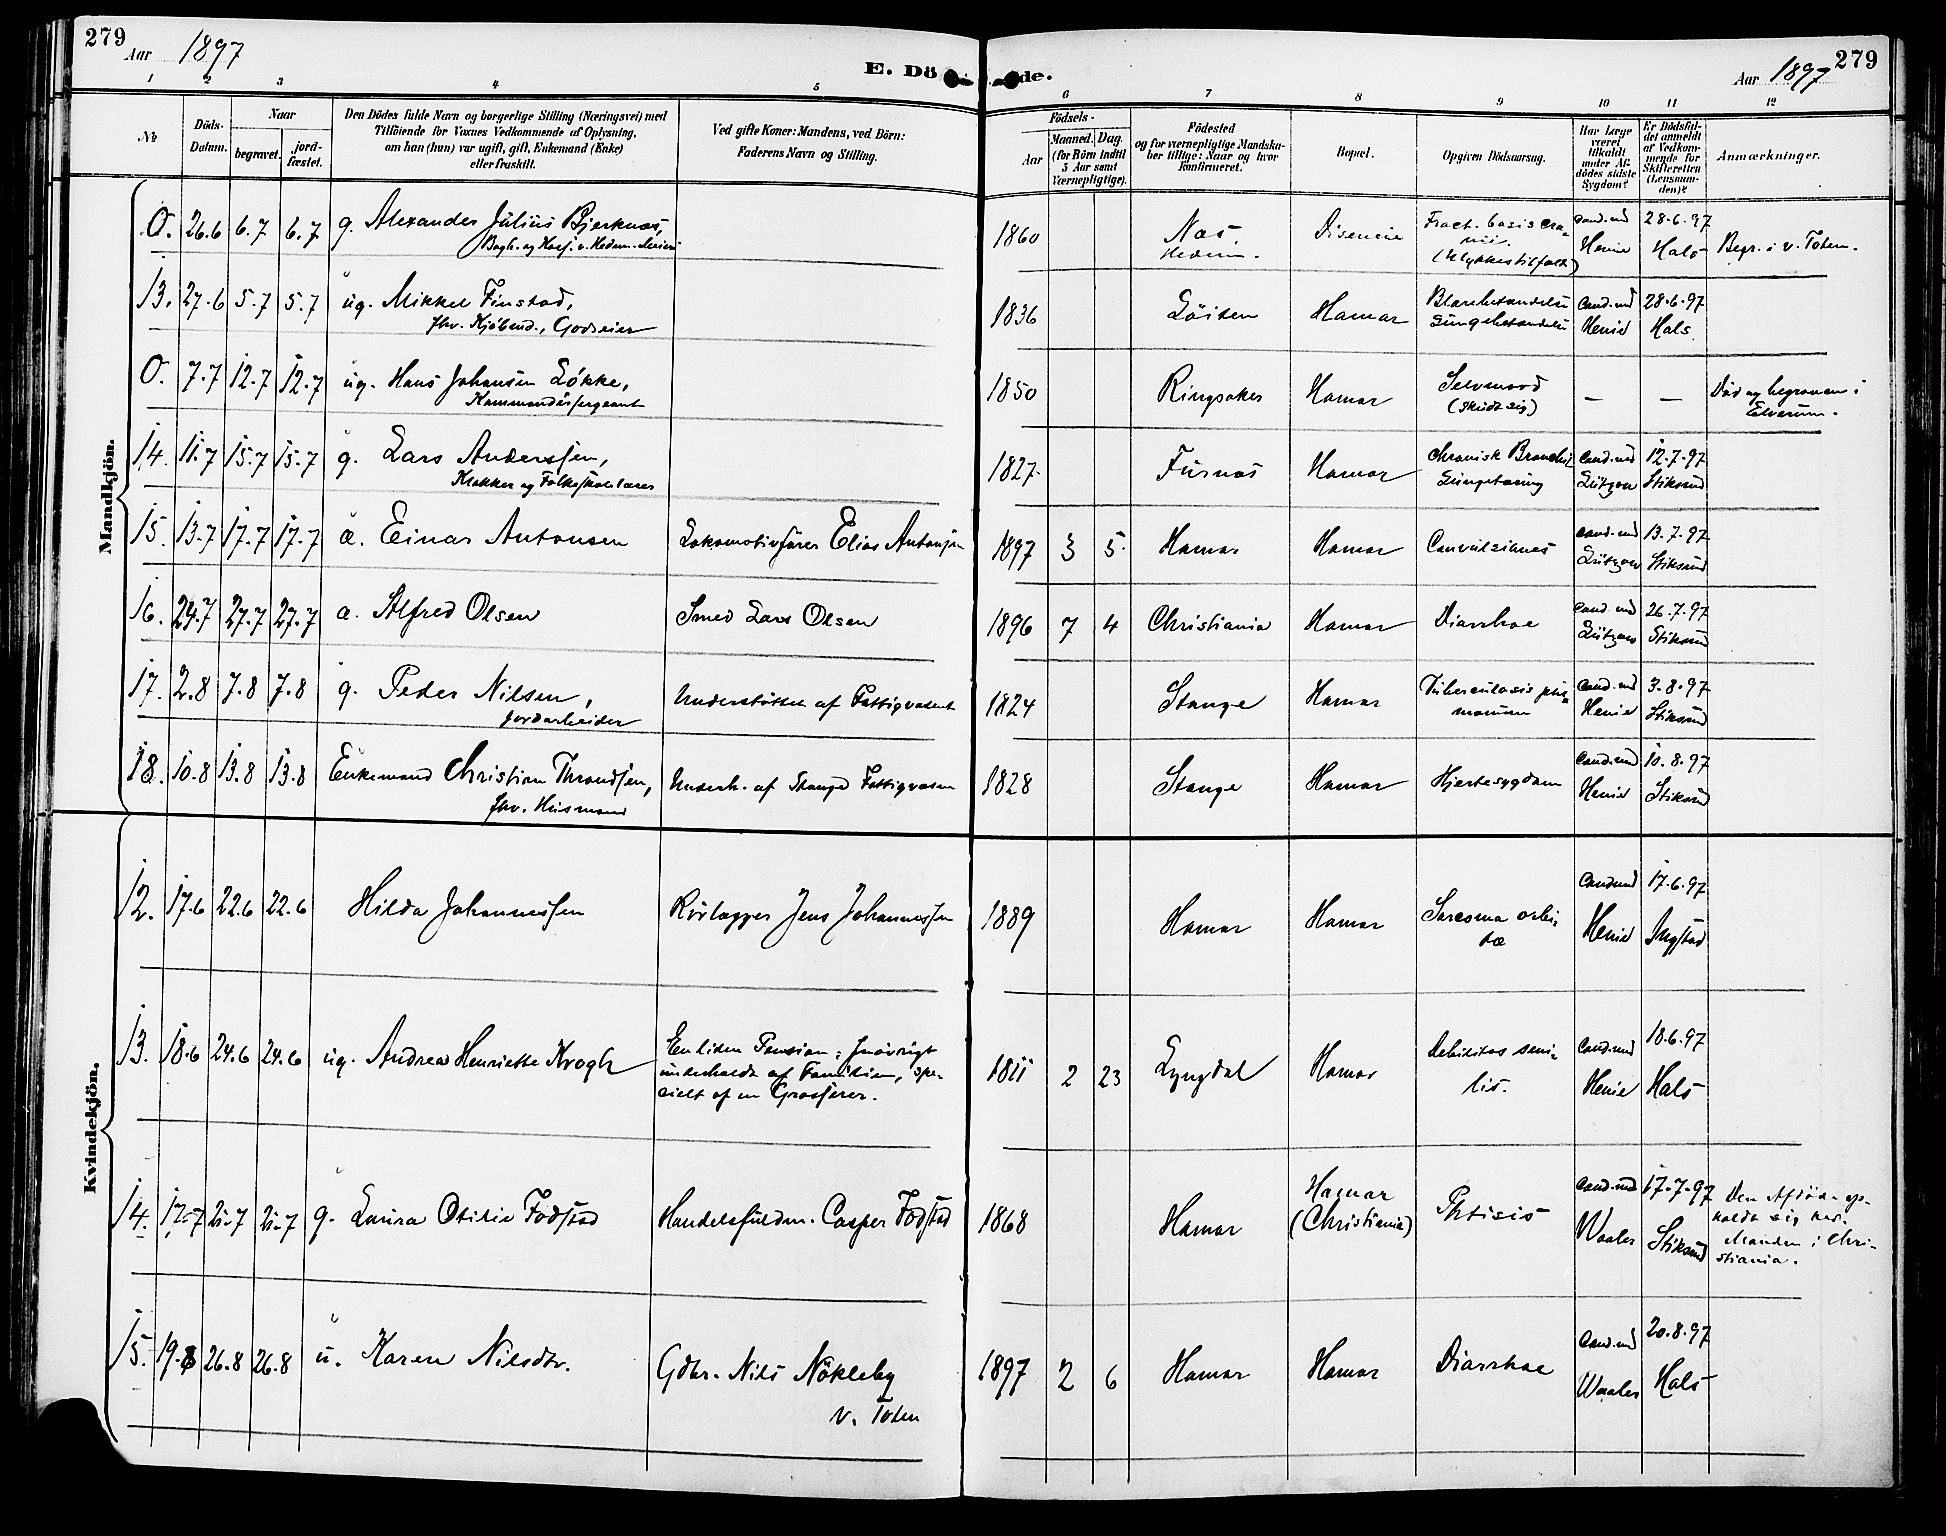 279
Aar 1897
E. Dö
de.
Aar 1897
279
1 2 3 4 5 6 7 8 9 10 11 12
No
Döds-Datum.
Naar
begravet.
jord-fæstet.
Den Dödes fulde Navn og borgerlige Stilling (Næringsvei) med
Tilföiende for Voxnes Vedkommende af Oplysning,
om han (hun) var ugift, gift, Enkemand (Enke)
eller fraskilt.
Ved gifte Koner: Mandens, ved Börn:
Faderens Navn og Stilling.
Födsels-
Aar
Maaned. Dag.
(for Börn indtil
5 Aar samt
Værnepligtige).
Födested
og for værnepligtige Mandska-
ber tillige: Naar og hvor
Konfirmeret.
Bopæl.
Opgiven Dödsaarsag.
Har Læge
været
tilkaldt
under Af-
dödes sidste
Sygdom?
Er Dödsfal-
det anmeldt
af Vedkom-
mende for
Skifteretten
(Lensman-
den)?
Anmærkninger.
Mandkjön.
0. 26.6 6.7 6.7 g. Alexander Julius Bjerknæs, Bogh. og Kass. v. Hedem. Meieri 1860 Næs. Hedem. Disen Fract. basis cranii. (Ulykkestilfælde) Cand. med Henie 28-6-97 Hals Begr. i V. Toten.
13. 27.6 5.7 5.7 ug. Mikkel Finstad, fhv. Kjöbmd., Godseier 1836 Löiten Hamar Blærebetændelse Lungebetændelse Cand. med Henie 28-6-97 Hals.
0. 7.7 12.7 12.7 ug. Hans Johansen Lökke, Kommandersergeant 1850 Ringsaker Hamar Selvmord (skudt sig) — — Död og begraven i Elverum.
14. 11.7 15.7 15.7 g. Lars Anderssen, Klokker og Folkeskolelærer 1827 Furnæs Hamar Chronisk Bronchit Lungetæring Cand. med Lützow 12-7-97 Stiksrud
15. 13.7 17.7 17.7 a. Einar Antonsen Lokomotivförer Elias Antonsen 1897 3 5. Hamar Hamar Convulsiones Cand. med Lützow 13.7.97 Stiksrud
16. 24.7 27.7 27.7 a. Alfred Olsen Smed Lars Olsen 1896 7 4 Christiania Hamar Diarrhoe Cand. med Lützow 26.7.97 Stiksrud
17. 2.8 7.8 7.8 g. Peder Nilsen, Jordarbeider Understöttet af Fattigvæsenet 1824 Stange Hamar Tuberculosis pulmonum Cand. med Henie 3-8-97 Stiksrud
18. 10.8 13.8 13.8 Enkemand Christian Throndsen, fhv. Husmand Underh. af Stange Fattigvæsen 1828 Stange Hamar Hjertesygdom Cand. med Henie 10.8.97 Stiksrud
Kvindekjön.
12. 17.6 22.6 22.6 Hilda Johannessen Rörlægger Jens Johannessen 1889 Hamar Hamar Sarcoma orbitæ Cand. med Henie 17.6.97 Ingstad
13. 18.6 24.6 24.6 ug. Andrea Henriette Krogh En liden Pension; Iövrigt underholdt af Familien, specielt af en Grosserer. 1811 2 23 Lyngdal Hamar Debilitas senilis. Cand. med Henie 18.6.97 Hals
14. 17.7 21.7 21.7 g. Laura Otilie Fodstad Handelsfuldm. Casper Fodstad 1868 Hamar Hamar (Christiania) Phtisis Cand. med Waaler 17.7.97 Stiksrud Den Afdöde opholdt sig her. Manden i Christiania.
15. 19.8 26.8 26.8 u. Karen Nilsdtr. Gdbr. Nils Nökleby V. Toten 1897 2 6 Hamar Hamar Diarrhoe Cand. med Waaler 20.8.97 Hals